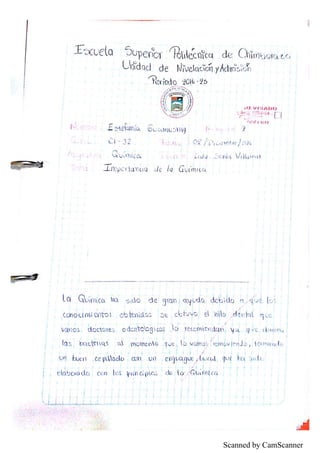 Escuela Superior Politécnica de Chimborazo
Unidad de Nivelación y Admisión
Período 2016-2S
Estefanía Guamushig 7
CI-32 08/Diciembre/2016
Química
Tema: Importancia de la Química
La Química ha sido de gran ayuda debido a que los
conocimientos obtenidos se obtuvo el hilo dental que
varios doctores odontológicos lo recomiendan, ya que elimina
las bacterias al momento que lo vamos removiendo, teniendo
un buen cepillado con un enjuague bucal que ha sido
elaborado con los principios de la Química
Scanned by CamScanner